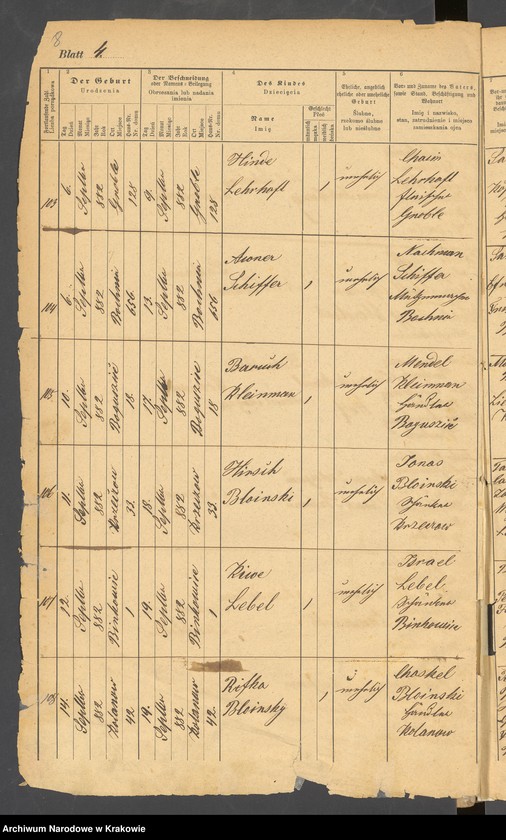 8
Blatt 4.
1
2
3
4
5
6
Fortlaufende Zahl
Liczba porządkowa
Der Geburt
Urodzenia
Der Beschneidung
oder Namens-Beilegung
Obrzezania lub nadania
imienia
Des Kindes
Dziecięcia
Eheliche, angeblich
eheliche oder uneheliche
Geburt
Ślubne,
rzekomo ślubne
lub nieślubne
Vor- und Zuname des Vaters,
sowie Stand, Beschäftigung und
Wohnort
Imię i nazwisko,
stan, zatrudnienie i miejsce
zamieszkania ojca
Tag
Dzień
Monat
Miesiąc
Jahr
Rok
Ort
Miejsce
Haus-Nr.
Nr. domu
Tag
Dzień
Monat
Miesiąc
Jahr
Rok
Ort
Miejsce
Haus-Nr.
Nr. domu
Name
Imię
Geschlecht
Płeć
männlich
męska
weiblich
żeńska
103
6.
Septbr
882
Gnoble
128
9.
Septbr
882
Gnoble
128
Hinde
Lehrhaft
1
unehelich
Chaim
Lehrhaft
Gnoble
104
6.
Septbr
882
Bochnia
656
13.
Septbr
882
Bochnia
656
Schiffer
1
unehelich
Nachman
Schiffer
Bochnia
105
10.
Septbr
882
18.
17.
Septbr
882
18
Baruch
Kleinman
1
unehelich
Mendel
Kleinman
Händler
106
11.
Septbr
882
33.
18.
Septbr
882
33.
Hirsch
Bloinski
1
unehelich
Jonas
Bloinski
Schänker
107
12.
Septbr
882
1
19.
Septbr
882
1
Lebel
1
unehelich
Israel
Lebel
Schänker
108
14.
Septbr
882
Kolanow
42.
19.
Septbr
882
Kolanow
42.
Rifka
Bloinsky
1
unehelich
Chaskel
Bloinski
Händler
Kolanow
Archiwum Narodowe w Krakowie